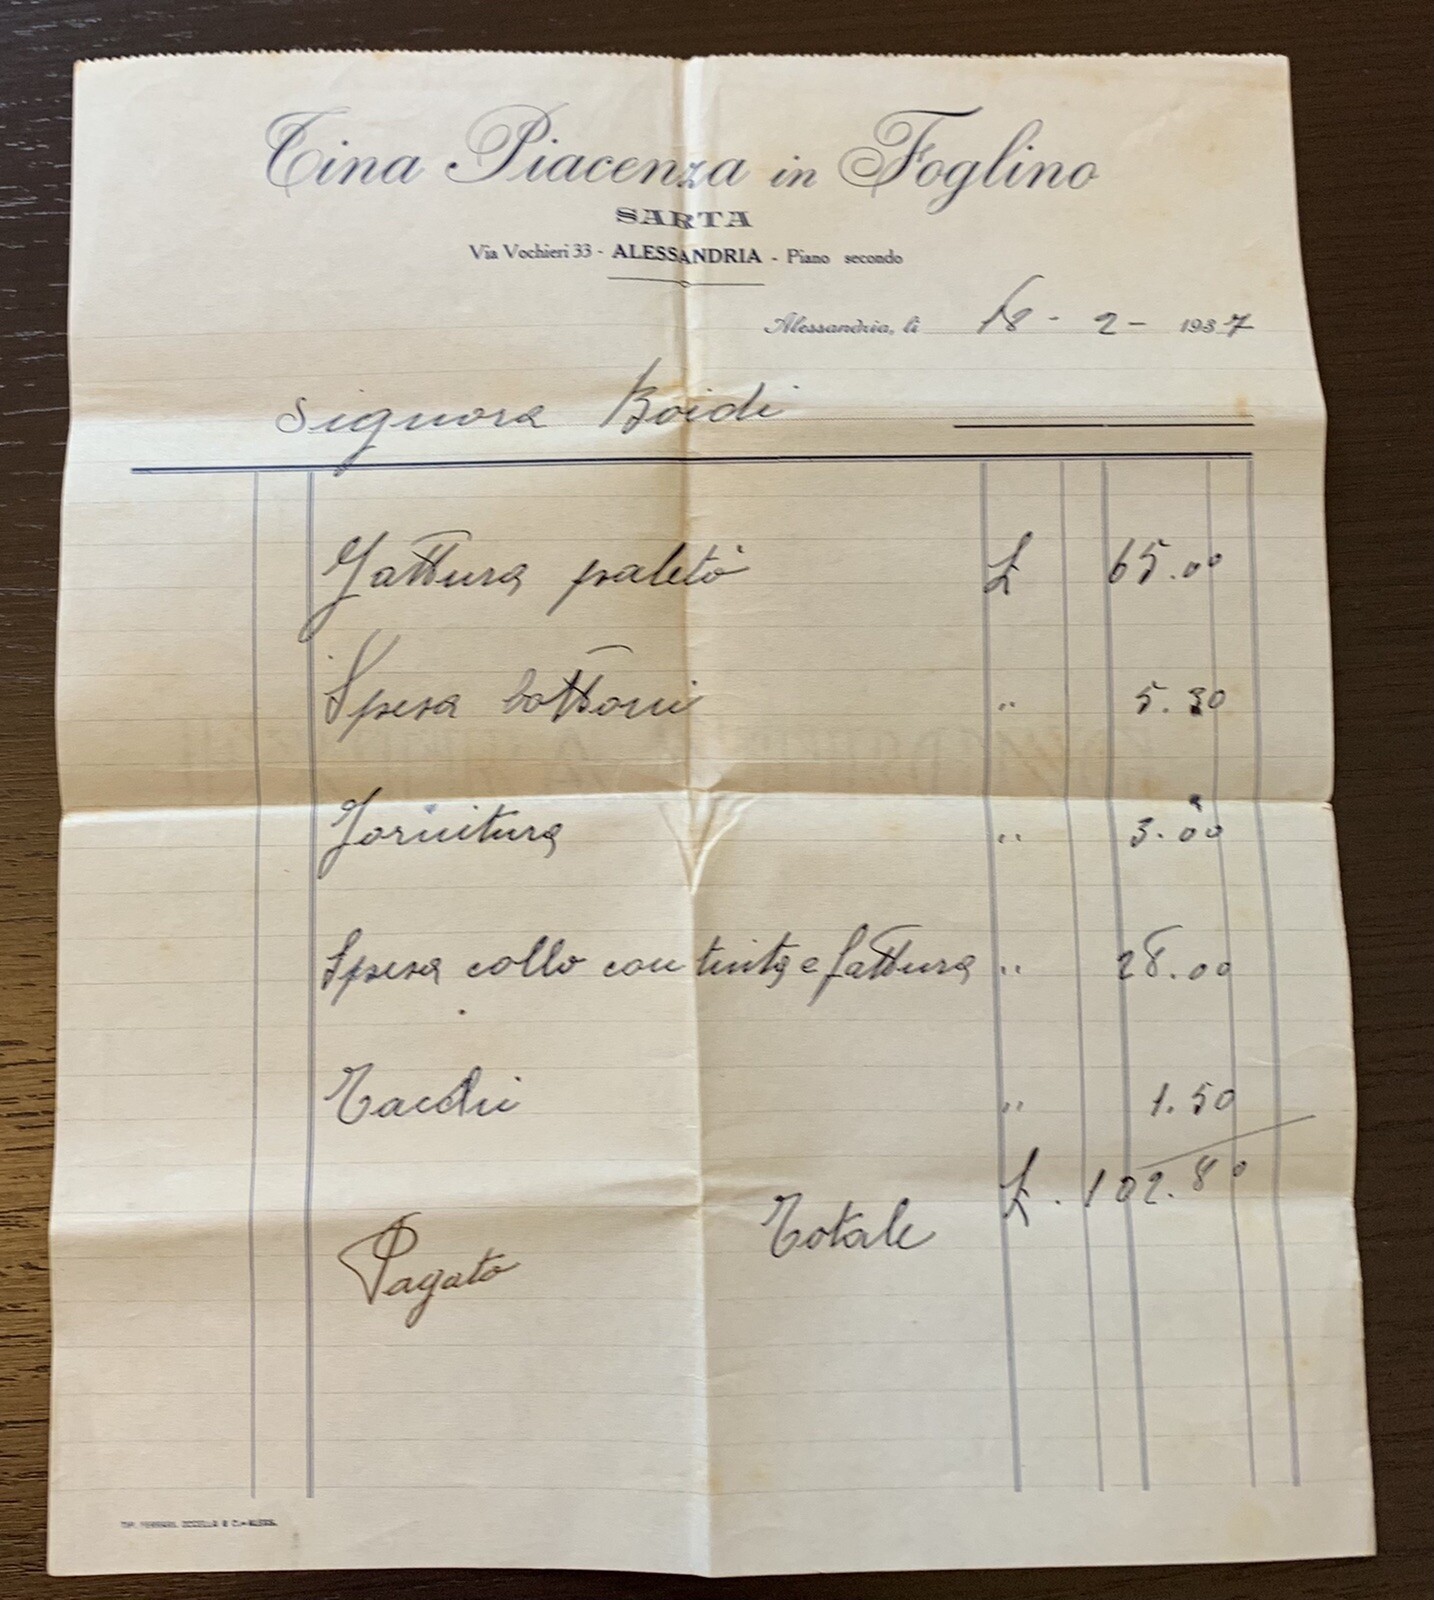 Tina Piacenza in Foglino
SARTA
Via Vochieri 33 - ALESSANDRIA - Piano secondo
Alessandria, li 18 - 2 - 1937
Signora Boidi
Fattura paletò £ 65.00
Spesa bottoni " 5.30
Fornitura " 3.00
Spesa collo con tinta e fattura " 28.00
Tacchi " 1.50
Totale £. 102.80
Pagato
TIP. FERRARI, OCCELLA & C. - ALESS.